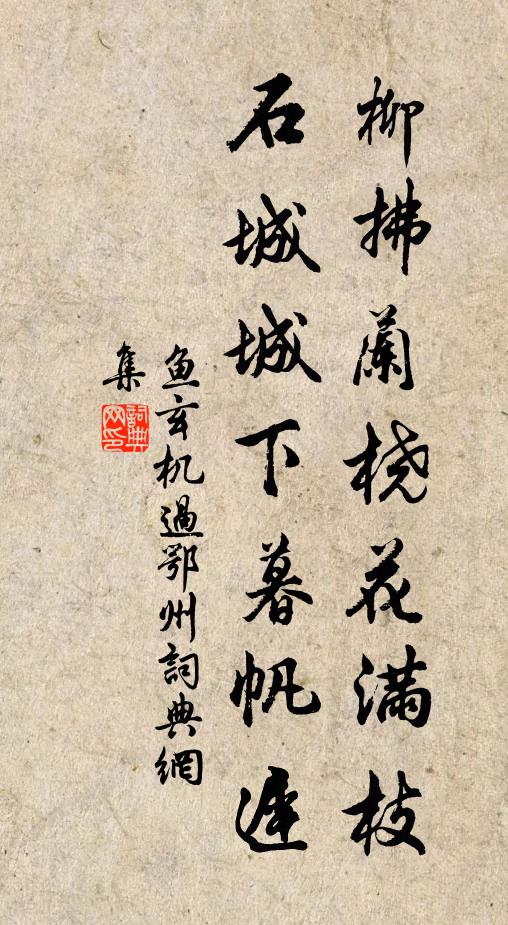 柳拂蘭桡花满枝
石城城下暮帆遲
鱼玄机過鄂州詞典網
集
詞典網印